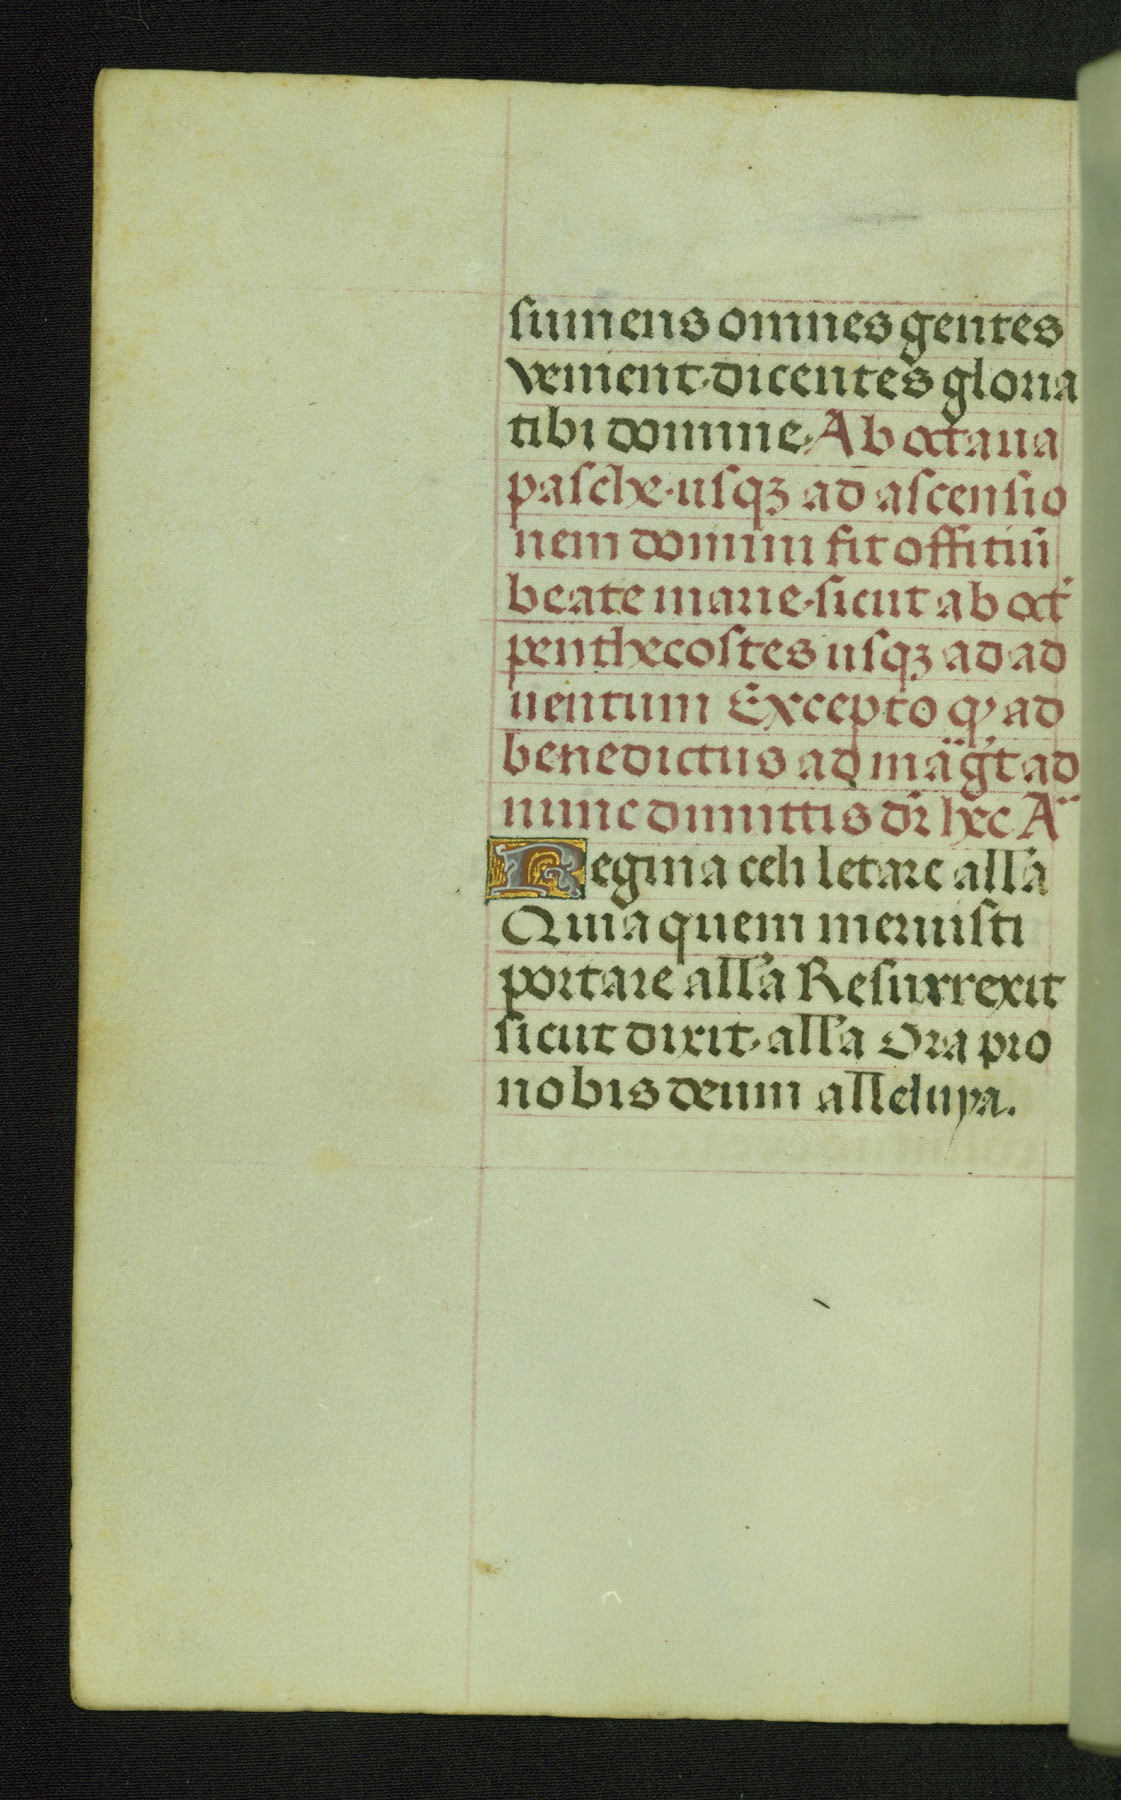 sumens omnes gentes
venient dicentes gloria
tibi domine. Ab octaua
pasche usqꝫ ad ascensio
nem domini fit offitiū
beate marie sicut ab oct̄
penthecostes usqꝫ ad ad
uentum Excepto ꝙ ad
benedictus ad mag̃t ad
nunc dimittis dr̄ hec A
Regina celi letare all'a
Quia quem meruisti
portare all'a Resurrexit
sicut dixit. all'a Ora pro
nobis deum alleluya.